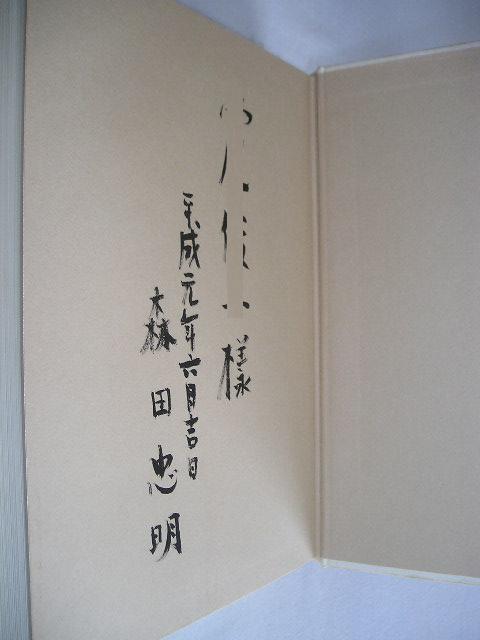 様
平成元年六月吉日
森田忠明